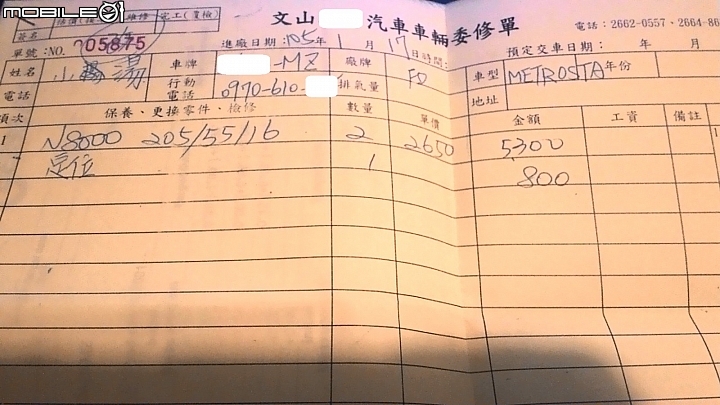 MOBILE01
估價(技 維修 完工(覆檢)
簽名
單號:NO. 005875
文山 汽車車輛委修單
電話:2662-0557、2664-86
進廠日期:105年 1 月 17 日時間:
預定交車日期: 年 月
姓名 小 湯 車牌 -MZ 廠牌 FD 車型 METROSTA 年份
電話 行動電話 0970-610- 排氣量 地址
項次 保養、更換零件、檢修 數量 單價 金額 工資 備註
1 NS8000 205/55/16 2 2650 5300
定位 1 800